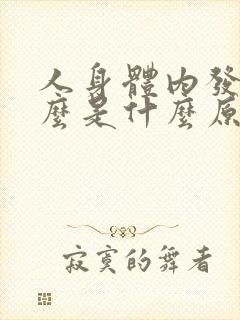 人身體內發
麼是什麼原
寂寞的舞者